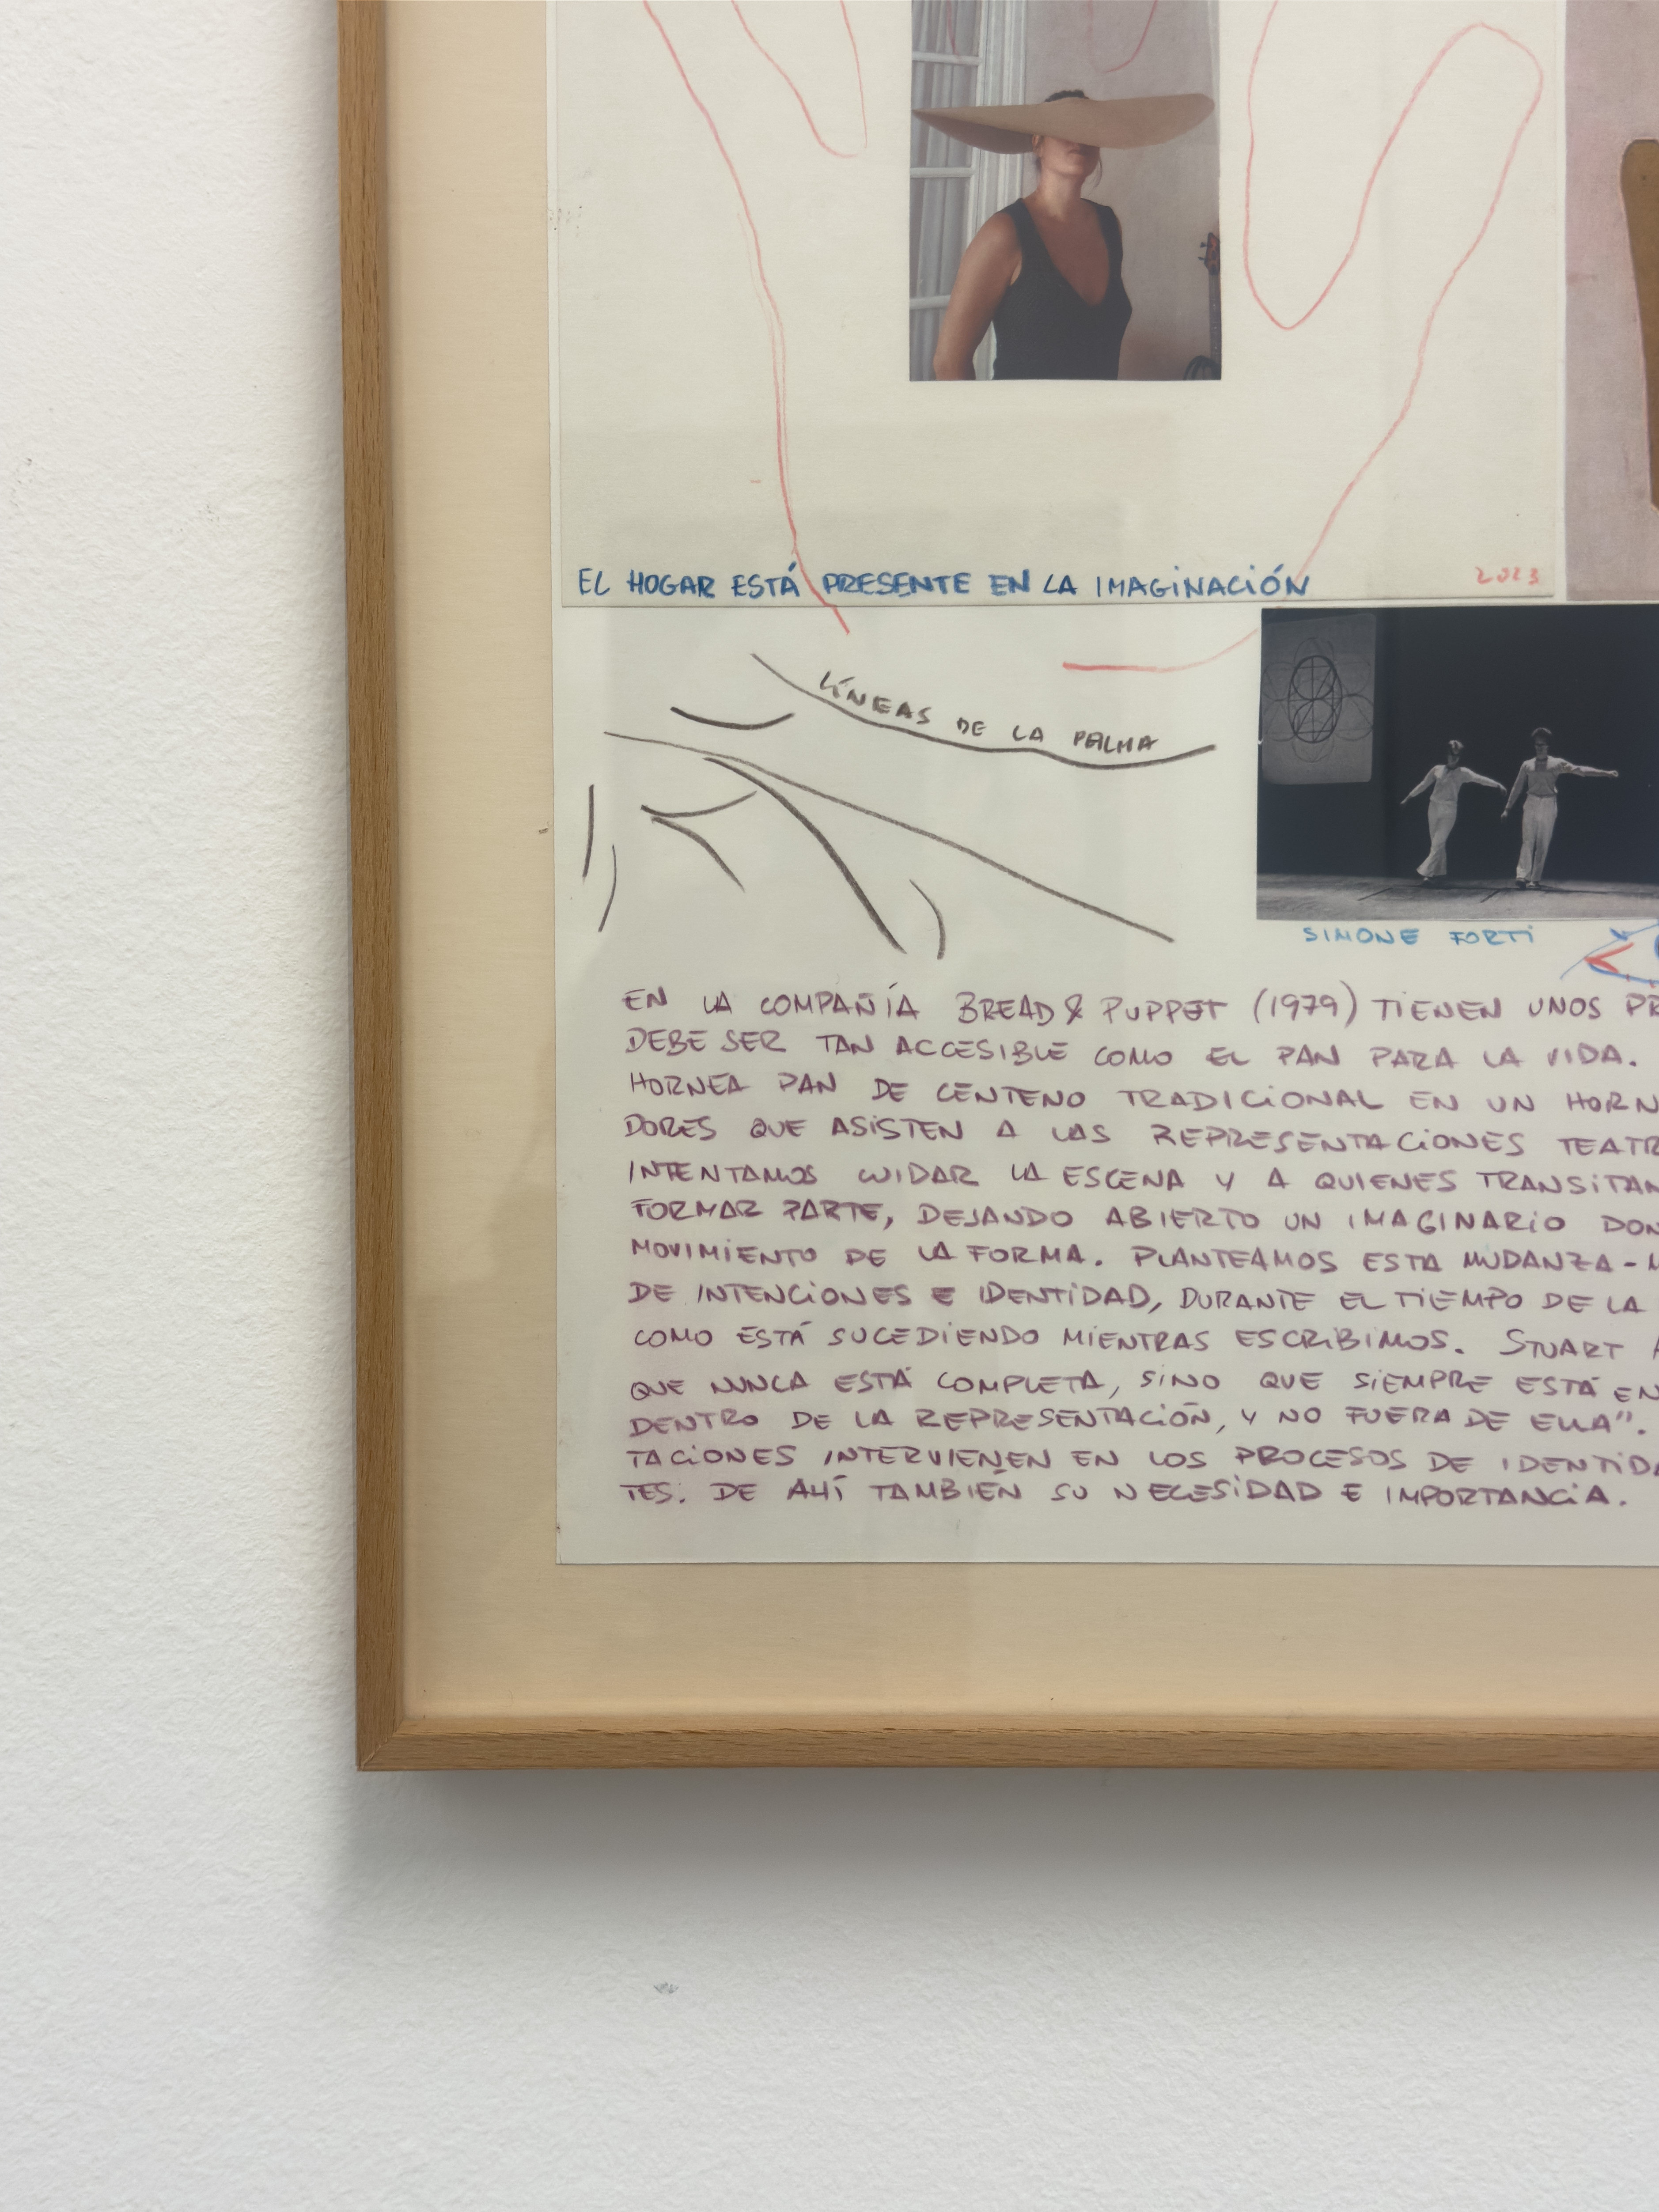 EL HOGAR ESTÁ PRESENTE EN LA IMAGINACIÓN
2023
LÍNEAS DE LA PALMA
SIMONE FORTI
EN LA COMPAÑÍA BREAD & PUPPET (1979) TIENEN UNOS PR
DEBE SER TAN ACCESIBLE COMO EL PAN PARA LA VIDA.
HORNEA PAN DE CENTENO TRADICIONAL EN UN HORN
DORES QUE ASISTEN A LAS REPRESENTACIONES TEATR
INTENTAMOS CUIDAR LA ESCENA Y A QUIENES TRANSITAN
FORMAR PARTE, DEJANDO ABIERTO UN IMAGINARIO DON
MOVIMIENTO DE LA FORMA. PLANTEAMOS ESTA MUDANZA-
DE INTENCIONES E IDENTIDAD, DURANTE EL TIEMPO DE LA
COMO ESTÁ SUCEDIENDO MIENTRAS ESCRIBIMOS. STUART
QUE NUNCA ESTÁ COMPLETA, SINO QUE SIEMPRE ESTÁ EN
DENTRO DE LA REPRESENTACIÓN, Y NO FUERA DE ELLA".
TACIONES INTERVIENEN EN LOS PROCESOS DE IDENTIDA
TES. DE AHÍ TAMBIÉN SU NECESIDAD E IMPORTANCIA.